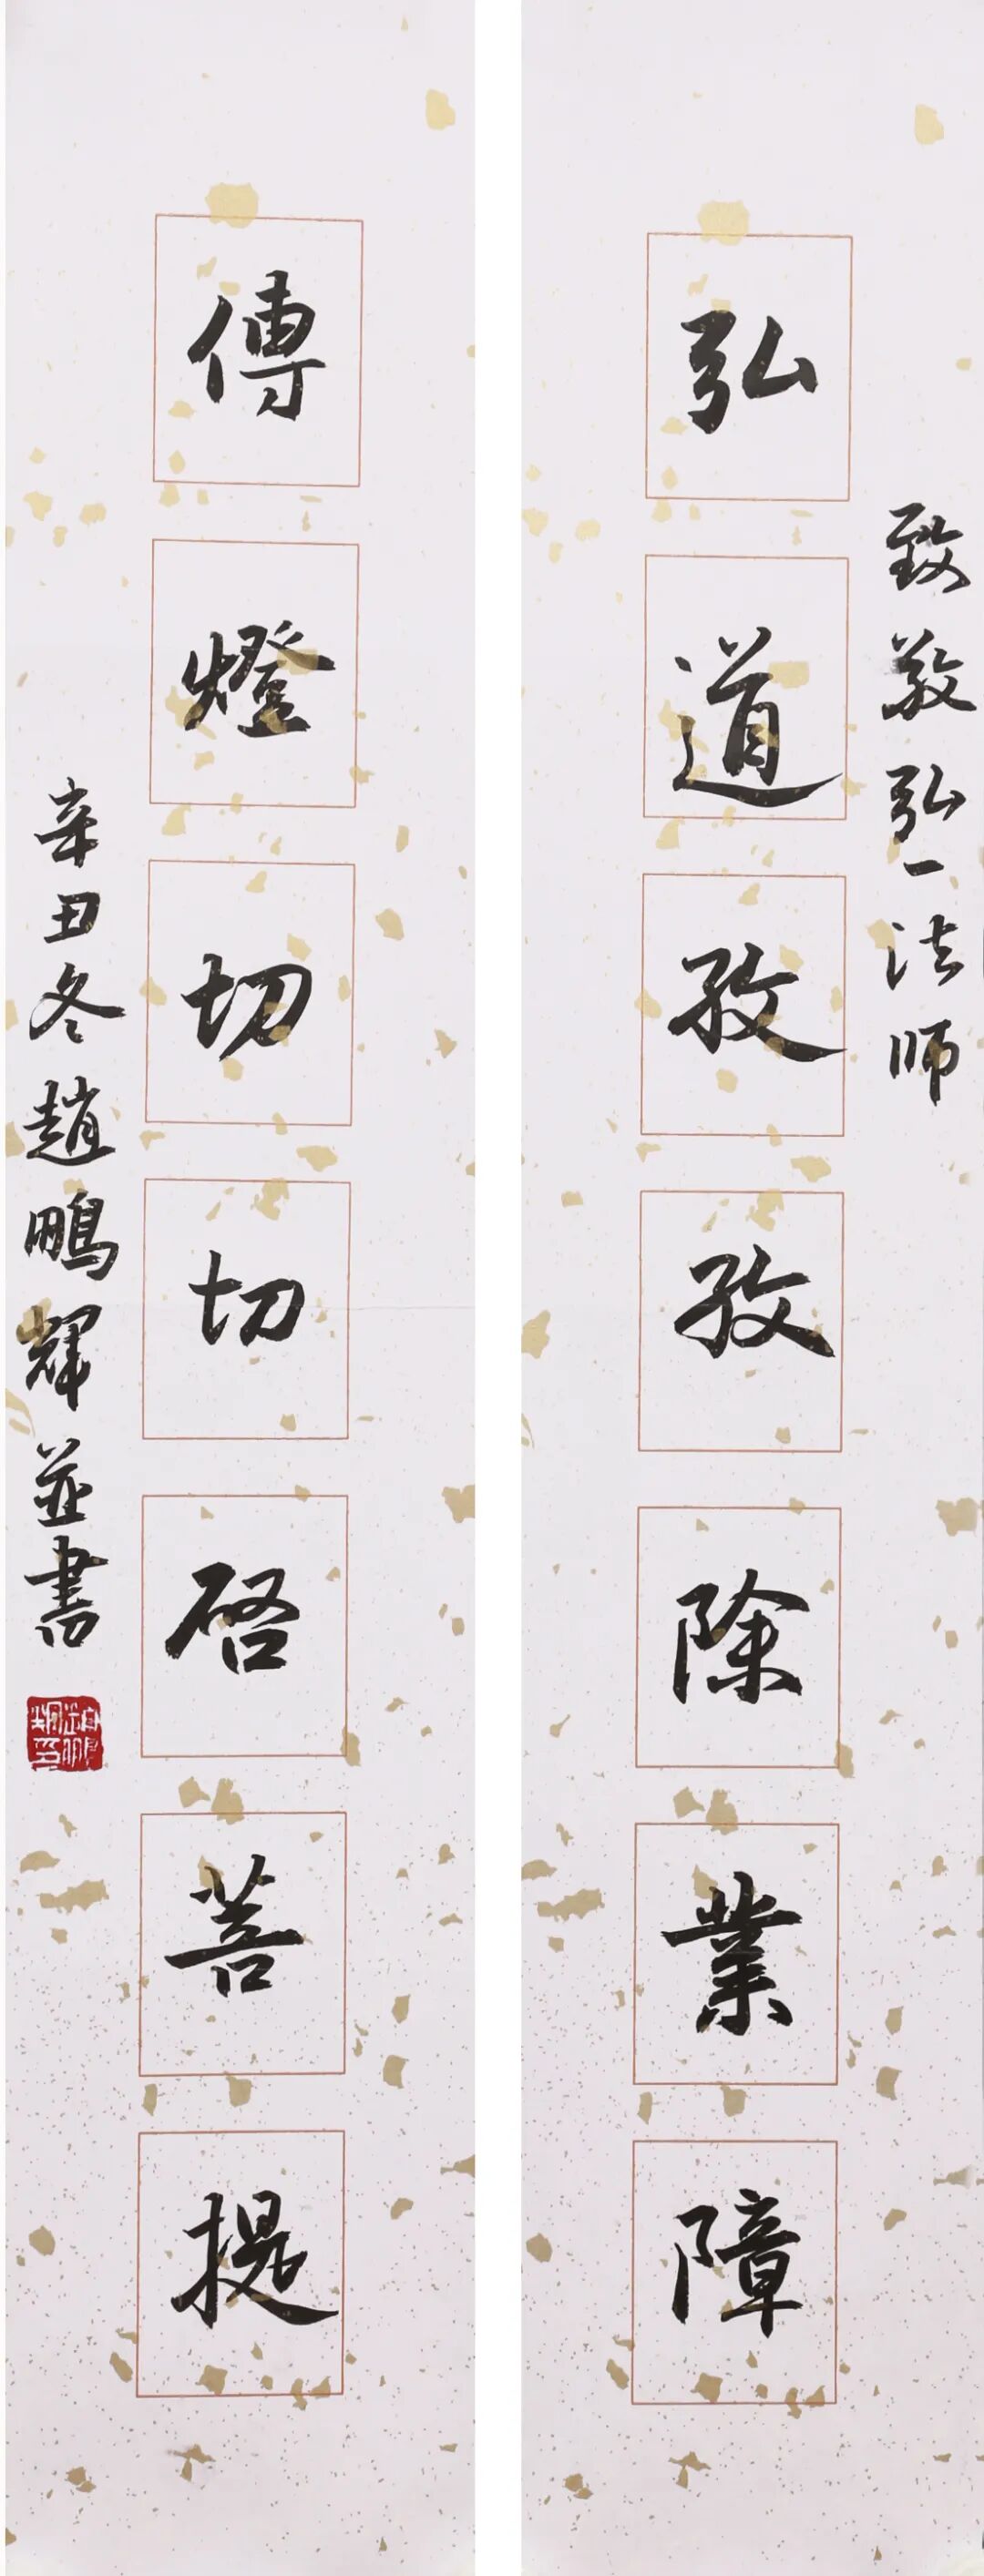 致敬弘一法师
弘道孜孜除業障
傳燈切切啓菩提
辛丑冬趙鵬輝並書